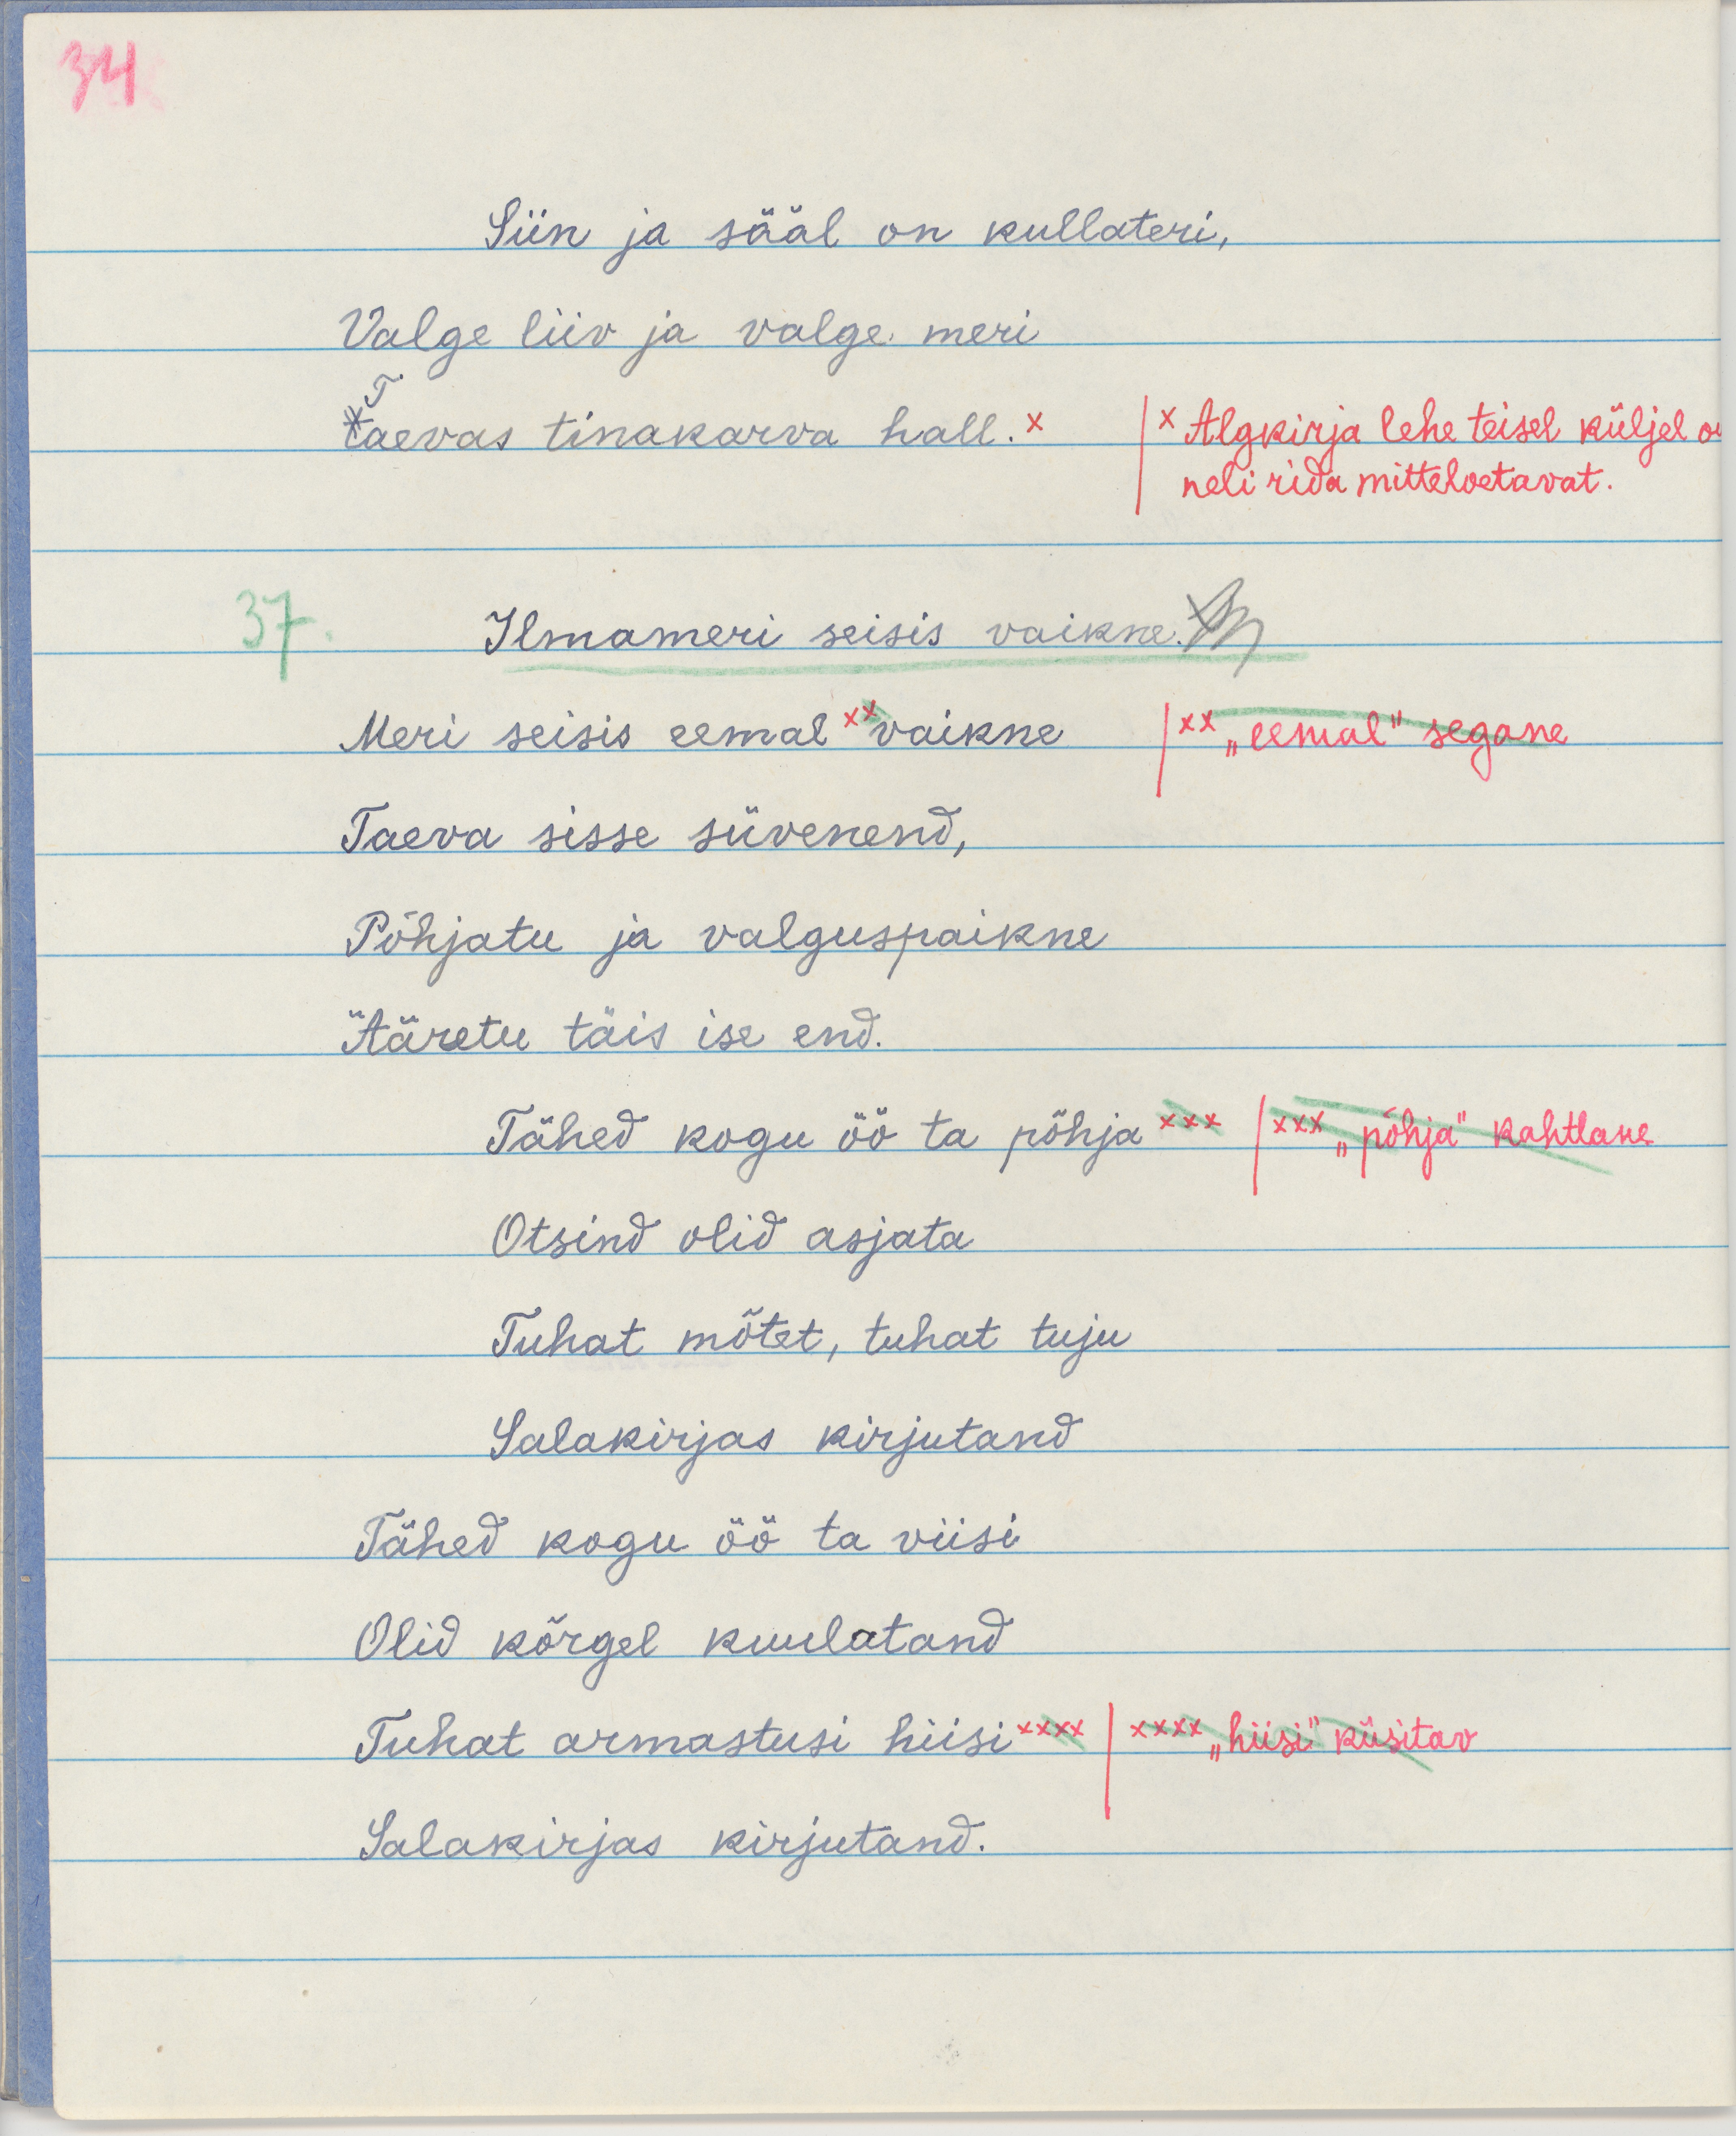 34
Siin ja sääl on kullateri,
Valge liiv ja valge meri
Taevas tinakarva hall. x
x Algkirja lehe teisel küljel o
neli rida mitteloetavat.
37.
Ilmameri seisis vaikne.
Meri seisis eemal xx vaikne
xx „eemal" segane
Taeva sisse süvenend,
Põhjatu ja valguspaikne
Ääretu täis ise end.
Tähed kogu öö ta põhja xxx
xxx „põhja" kahtlane
Otsind olid asjata
Tuhat mõtet, tuhat tuju
Salakirjas kirjutand
Tähed kogu öö ta viisi
Olid kõrgel kuulatand
Tuhat armastusi hiisi xxxx
xxxx „hiisi" küsitav
Salakirjas kirjutand.